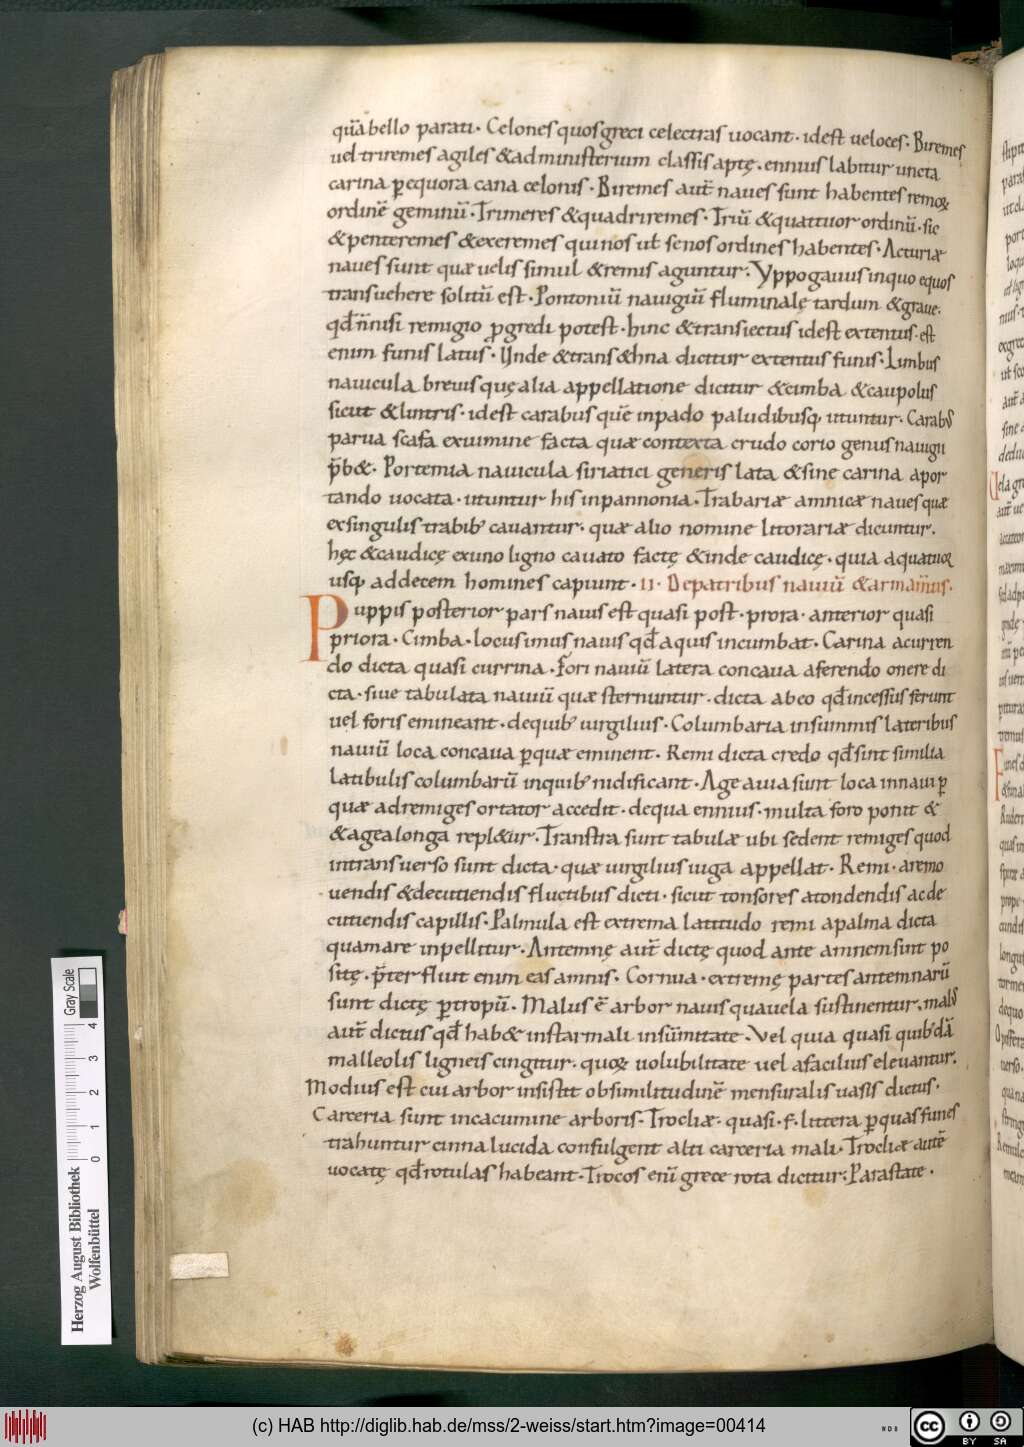 quā bello parati. Celones quos greci celectras uocant. id est ueloces. Biremes
uel triremes agiles & administerium classis aptę. ennius labitur uncta
carina p̄ equora cana celonis. Biremes aut̄ naues sunt habentes remoꝝ
ordinē geminū. Trimeres & quadriremes. Triū & quattuor ordinū. sic
& penteremes & exeremes quinos ut̄ senos ordines habentes. Acturiæ
naues sunt quæ uelis simul & remis aguntur. Yppogauus in quo equos
transuehere solitū est. Pontoniū nauigiū fluminalę tardum & graue.
qd̄ n̄ nisi remigio ꝓgredi potest. hinc & transiectus id est extentus. est
enim funis latus. Unde & trans&hna dicitur extentus funis. Limbus
nauicula breuis quę alia appellatione dicitur & cimba & caupolus
sicut & lintris. id est carabus quē in pado paludibusq; utuntur. Carabꝰ
parua scafa ex uimine facta quæ contexta crudo corio genus nauigii
p̄b&. Portemia nauicula siriatici generis lata & sine carina a por
tando uocata. utuntur his in pannonia. Trabariæ amnicæ naues quæ
ex singulis trabibꝰ cauantur. quæ alio nomine litorariæ dicuntur.
hęc & caudicę ex uno ligno cauato factę & inde caudicę. quia a quatuor
usq; ad decem homines capiunt. II. De patribus nauiū & armam̄tis.
Puppis posterior pars nauis est quasi post. prora. anterior quasi
priora. Cimba. locus imus nauis qd̄ aquis incumbat. Carina a curren
do dicta quasi currina. Fori nauiū latera concaua a ferendo onere di
cta. siue tabulata nauiū quæ sternuntur. dicta ab eo qd̄ incessus ferunt
uel foris emineant. de quibꝰ uirgilius. Columbaria in summis lateribus
nauiū loca concaua p̄ quæ eminent. Remi dicta credo qd̄ sint similia
latibulis columbarū in quibꝰ nidificant. Age auia sunt loca in naui p̄
quæ ad remiges ortator accedit. de qua ennius. multa foro ponit &
& agea longa repl&ur. Transtra sunt tabulæ ubi sedent remiges quod
in transuerso sunt dicta. quæ uirgilius iuga appellat. Remi. a remo
uendis & decutiendis fluctibus dicti. sicut tonsores a tondendis ac de
cutiendis capillis. Palmula est extrema latitudo remi a palma dicta
qua mare inpellitur. Antemnę aut̄ dictę quod ante amnem sint po
sitę. p̄ter fluit enim eas amnis. Cornua. extremę partes antemnarū
sunt dictę p̄ tropū. Malus ē arbor nauis qua uela sustinentur. malꝰ
aut̄ dictus qd̄ hab& instar mali in sūmitate. Vel quia quasi quibꝰdā
malleolis ligneis cingitur. quoꝝ uolubilitate uel a facilius eleuantur.
Modius est cui arbor insistit ob similitudinē mensuralis uasis dictus.
Carceria sunt in cacumine arboris. Trocliæ. quasi. f. littera p̄ quas funes
trahuntur cinna lucida confulgent alti carceria mali. Trocliæ autē
uocatę qd̄ rotulas habeant. Trocos eni grece rota dicitur. Parastate.
Herzog August Bibliothek
Wolfenbüttel
0 1 2 3 4
Gray Scale
(c) HAB http://diglib.hab.de/mss/2-weiss/start.htm?image=00414
cc BY SA